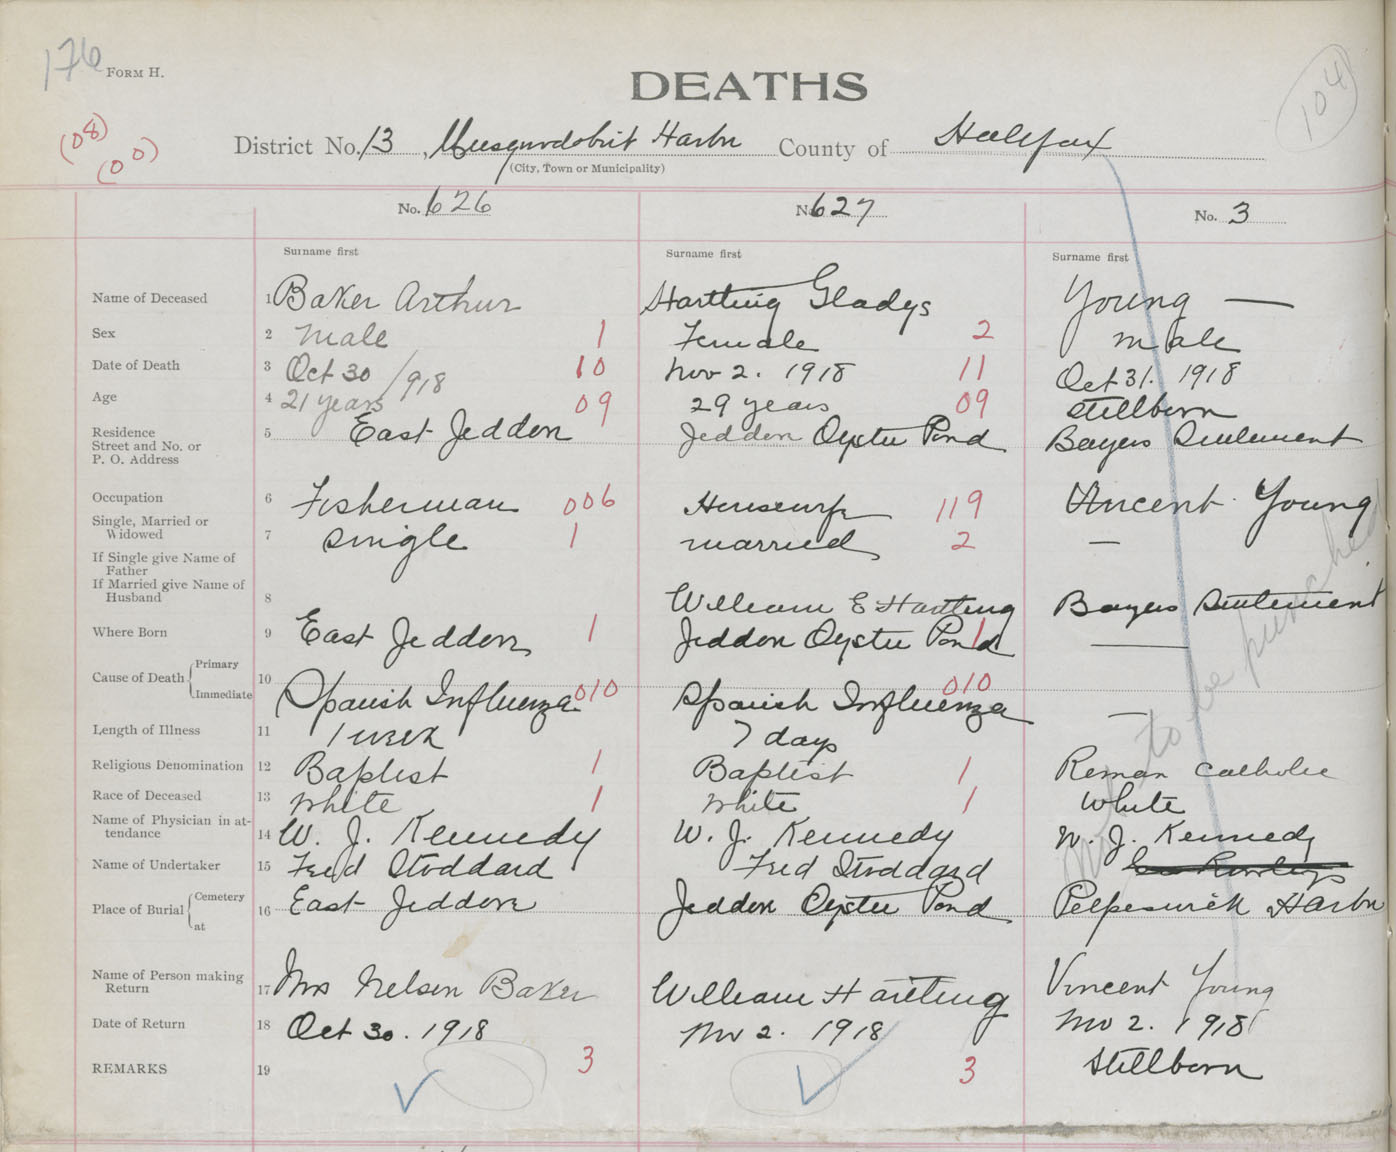 176
FORM H.
DEATHS
104
(08)
(00)
District No. 13, Musquodobit Harbr County of Halifax
(City, Town or Municipality)
No. 626 No. 627 No. 3
Surname first Surname first Surname first
Name of Deceased 1 Baker Arthur Hartling Gladys Young —
Sex 2 Male 1 Female 2 male
Date of Death 3 Oct 30/918 10 Nov 2. 1918 11 Oct 31. 1918
Age 4 21 years 09 29 years 09 Stillborn
Residence
Street and No. or 5 East Jeddore Jeddore Oyster Pond Bayers Settlement
P. O. Address
Occupation 6 Fisherman 006 Housewife 119 Vincent Young
Single, Married or
Widowed 7 Single 1 married 2 —
If Single give Name of
Father
If Married give Name of
Husband 8 William E Hartling Bayers Settlement
Where Born 9 East Jeddore 1 Jeddore Oyster Pond 1 —
Cause of Death { Primary
Immediate 10 Spanish Influenza 010 Spanish Influenza 010 —
Length of Illness 11 1 week 7 days
Religious Denomination 12 Baptist 1 Baptist 1 Roman Catholic
Race of Deceased 13 White 1 White 1 White
Name of Physician in at-
tendance 14 W. J. Kennedy W. J. Kennedy W. J. Kennedy
Name of Undertaker 15 Fred Stoddard Fred Stoddard
Place of Burial { Cemetery
at 16 East Jeddore Jeddore Oyster Pond Petpeswick Harbr
Name of Person making
Return 17 Mrs Nelson Baker William Hartling Vincent Young
Date of Return 18 Oct 30. 1918 Nov 2. 1918 Nov 2. 1918
REMARKS 19 3 3 Stillborn
Not to be punched